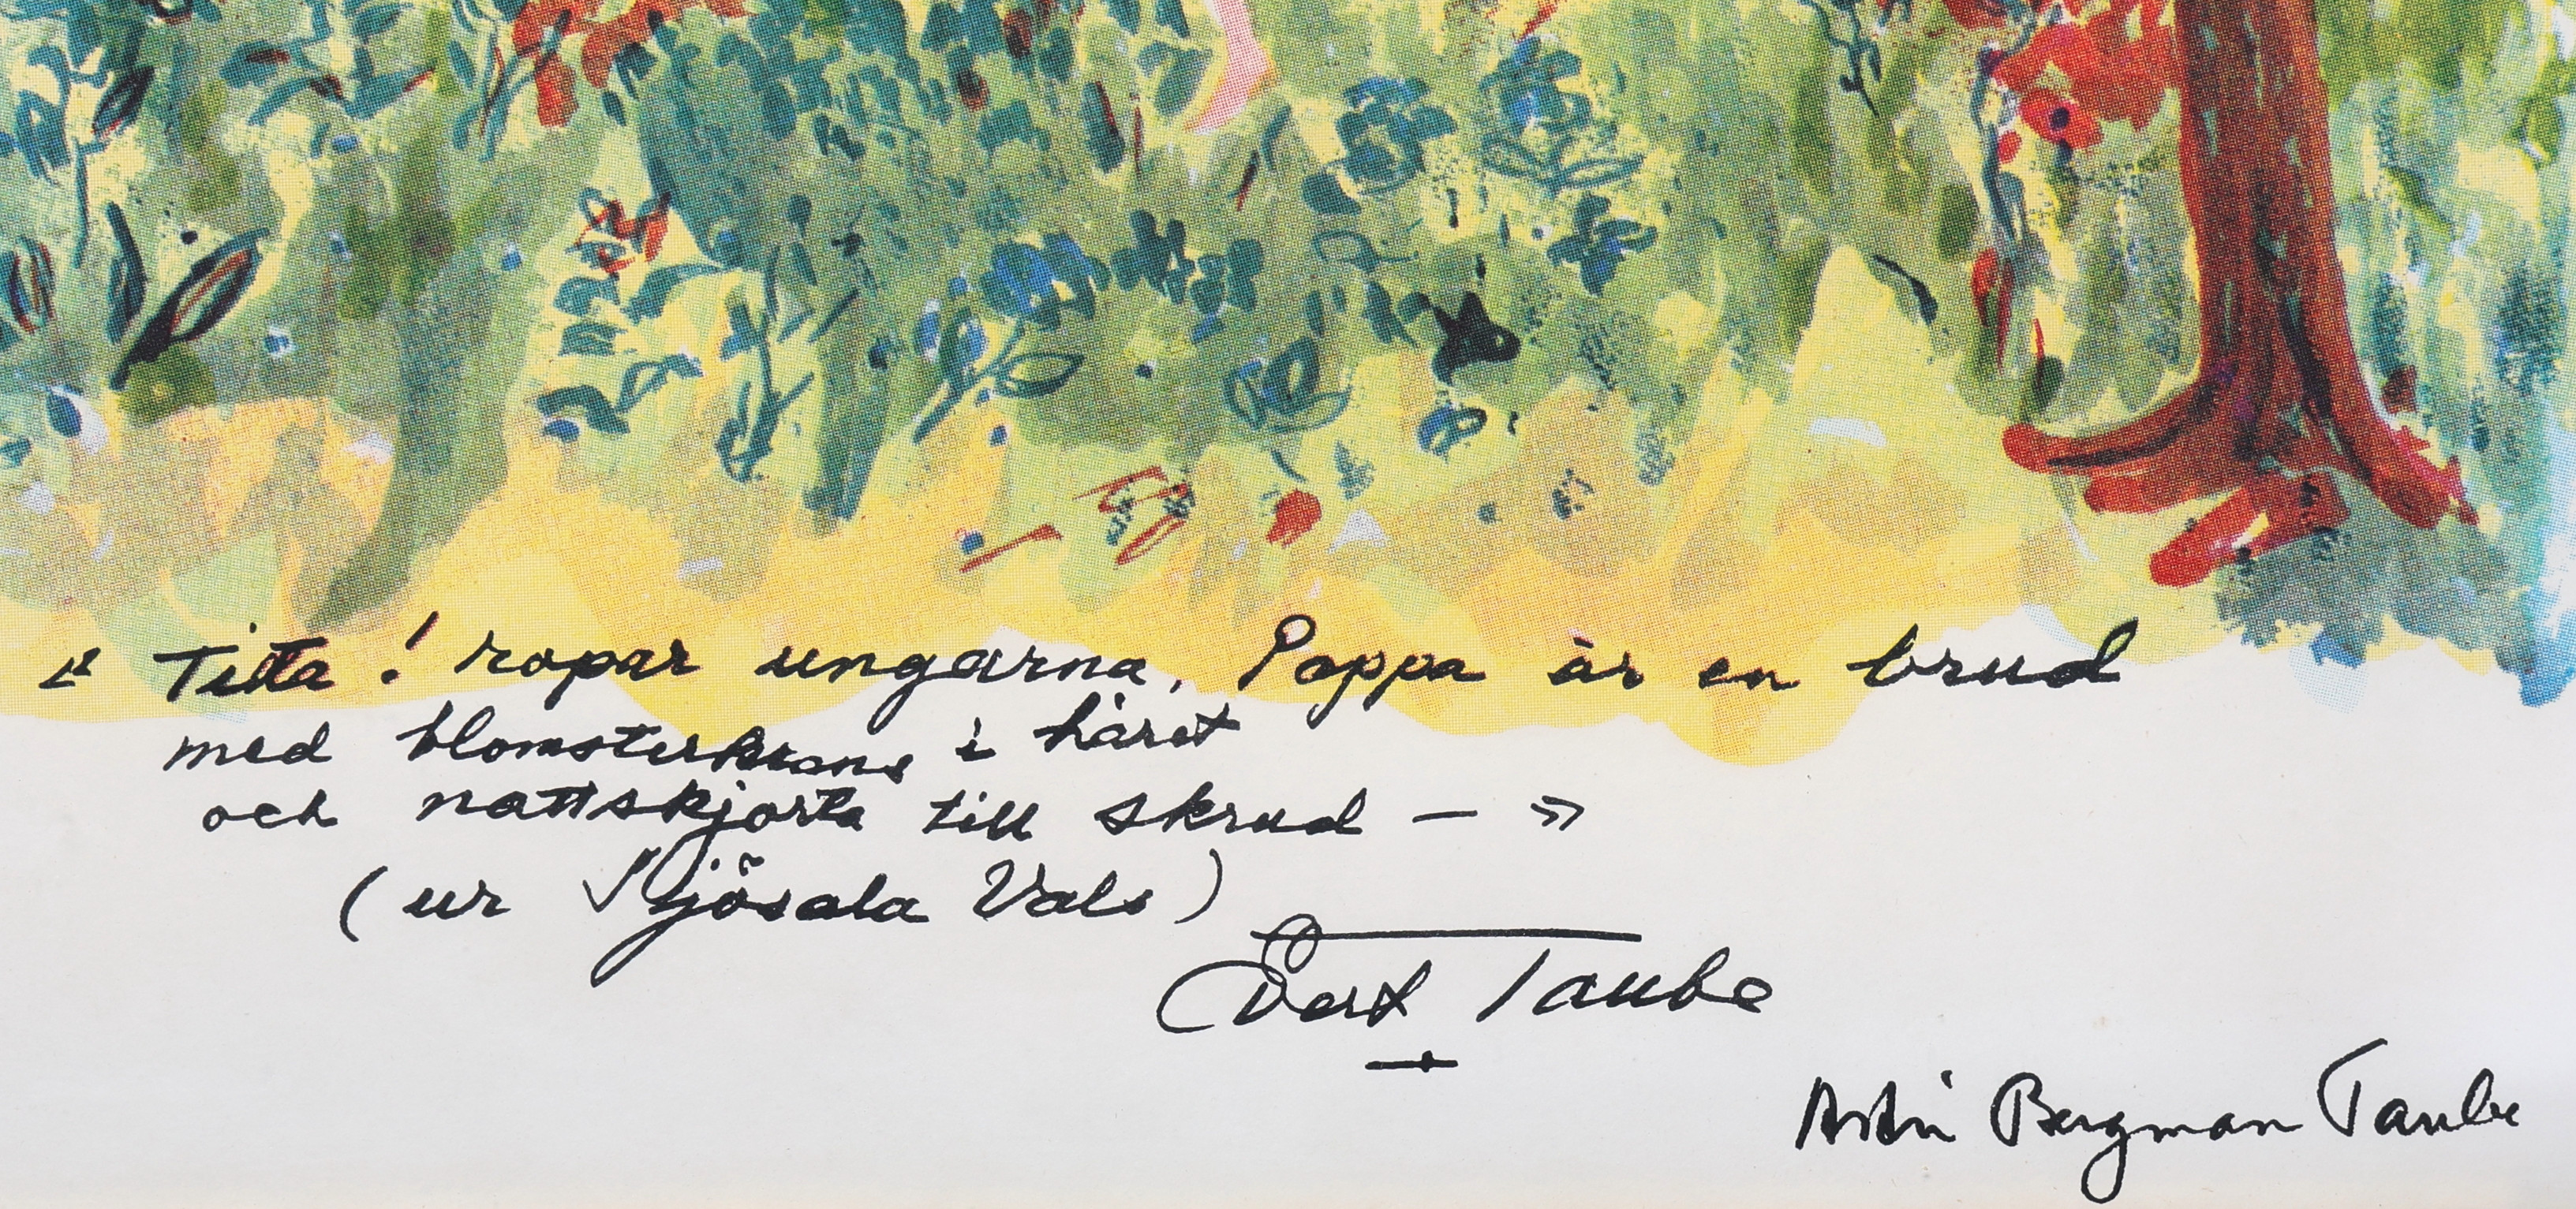 " Titta! ropar ungarna, Pappa är en brud
med blomsterkrans i håret
och nattskjorta till skrud — "
(ur Sjösala Vals)
Evert Taube
Astri Bergman Taube